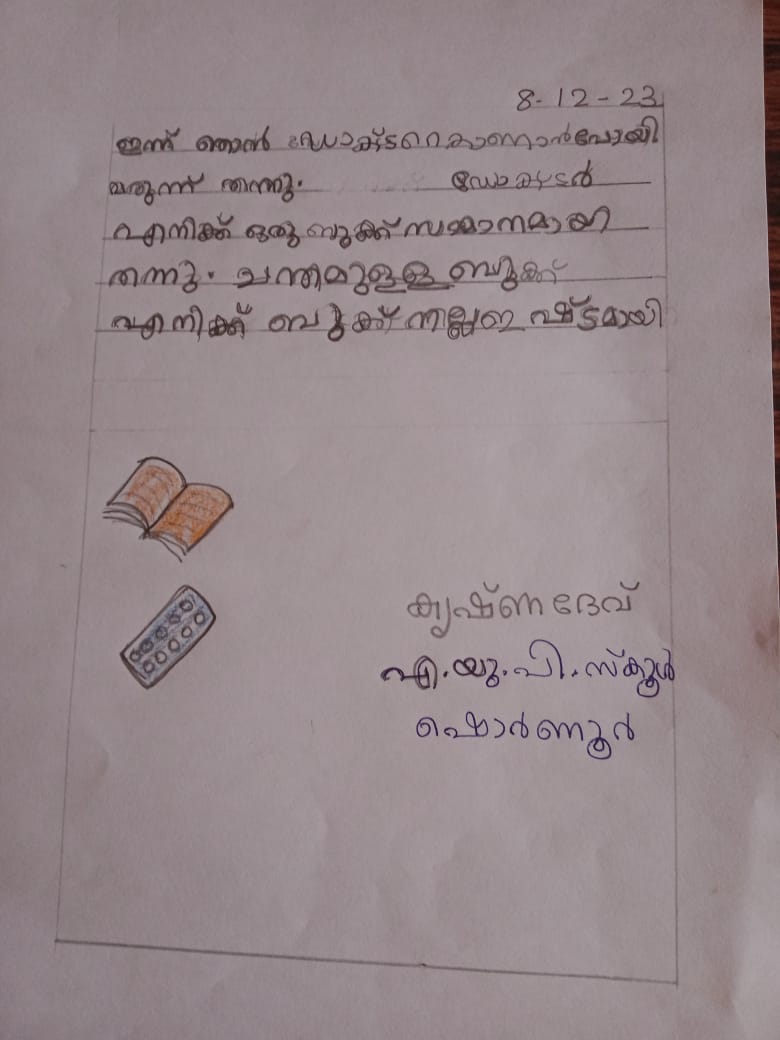 8-12-23
ഇന്ന് ഞാൻ ഡോക്ടറെകാണാൻപോയി
മരുന്ന് തന്നു. ഡോക്ടർ
എനിക്ക് ഒരു ബുക്ക് സമ്മാനമായി
തന്നു. ചന്തമുള്ള ബുക്ക്
എനിക്ക് ബുക്ക് നല്ലഇഷ്ടമായി
കൃഷ്ണദേവ്
എ.യു.പി.സ്കൂൾ
ഷൊർണൂർ